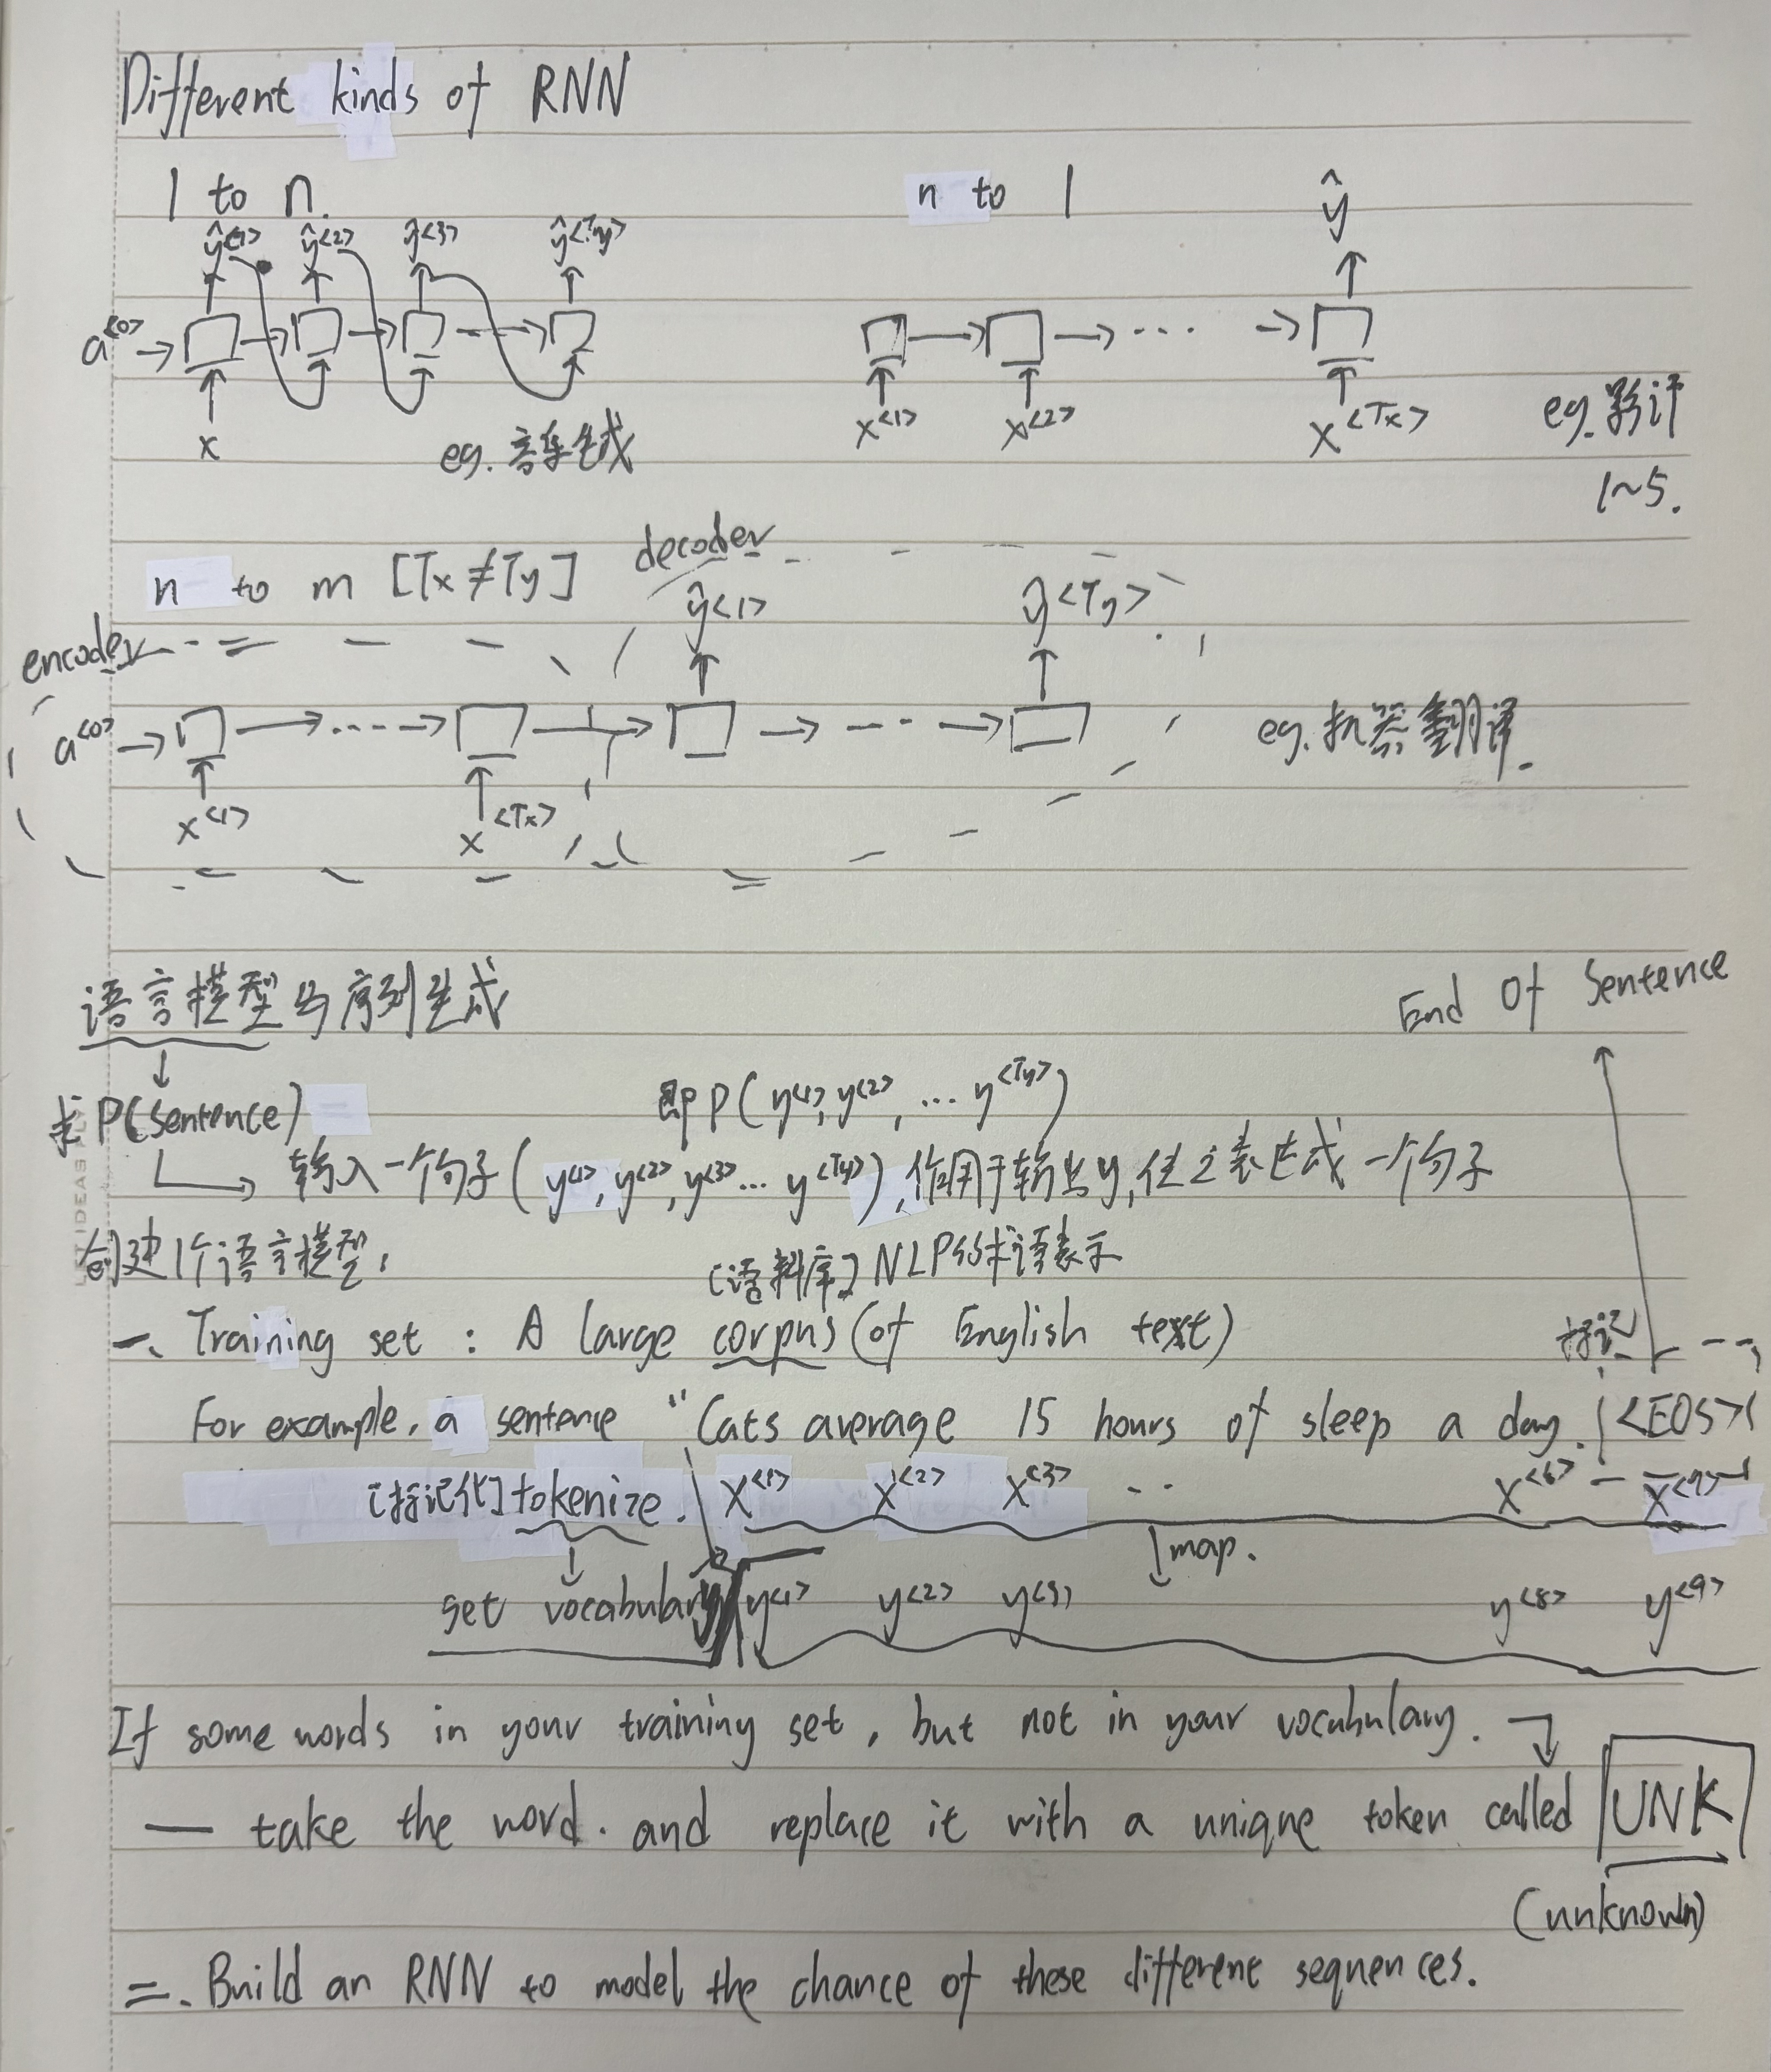 Different kinds of RNN
1 to n.
n to 1
ŷ<1> ŷ<2> ŷ<3> ŷ<Ty>
ŷ
a<0>
x
x<1> x<2> x<Tx>
eg. 音乐生成
eg. 影评
1~5.
n to m [Tx≠Ty]
decoder
ŷ<1> ŷ<Ty>
encoder
a<0>
eg. 机器翻译.
x<1> x<Tx>
语言模型与序列生成
End Of Sentence
求 P(sentence) =
即 P(y<1>, y<2>, ... y<Ty>)
输入一个句子(y<1>, y<2>, y<3>... y<Ty>),作用于输出y,使之表达成一个句子
创建1个语言模型,
[语料库] NLP的术语表示
一、Training set : A large corpus (of English text)
标记
For example, a sentence "Cats average 15 hours of sleep a day. <EOS>
[标记化] tokenize. x<1> x<2> x<3> .. x<6> x<7>
map.
set vocabulary y<1> y<2> y<3> y<8> y<9>
If some words in your training set, but not in your vocabulary.
— take the word. and replace it with a unique token called UNK
(unknown)
二. Build an RNN to model the chance of these different sequences.